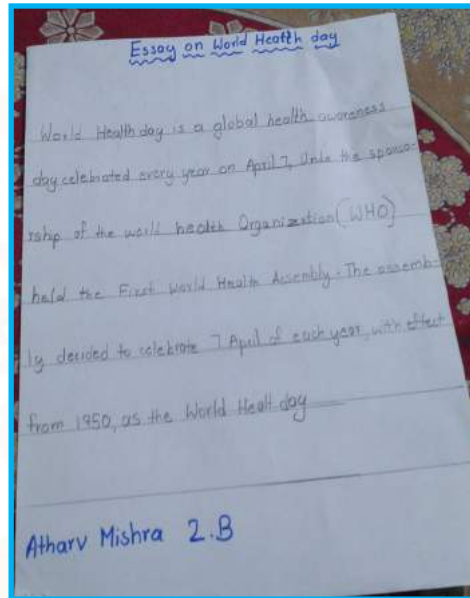 Essay on World Health day
World Health day is a global health awareness
day celebrated every year on April 7, Unde the sponso-
rship of the world health Organization (WHO)
held the First World Health Assembly. The assemb-
ly decided to celebrate 7 April of each year, with effect
from 1950, as the World Healt day
Atharv Mishra 2.B